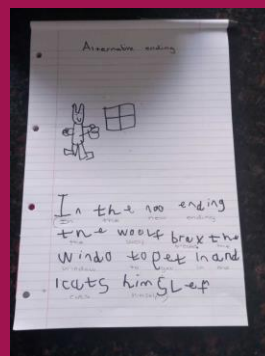 Alternative ending
In the noo ending
In the new ending
the woolf brax the
the wolf breaks the
windo to get in and
window to get in and
icuts himslef
cuts himself